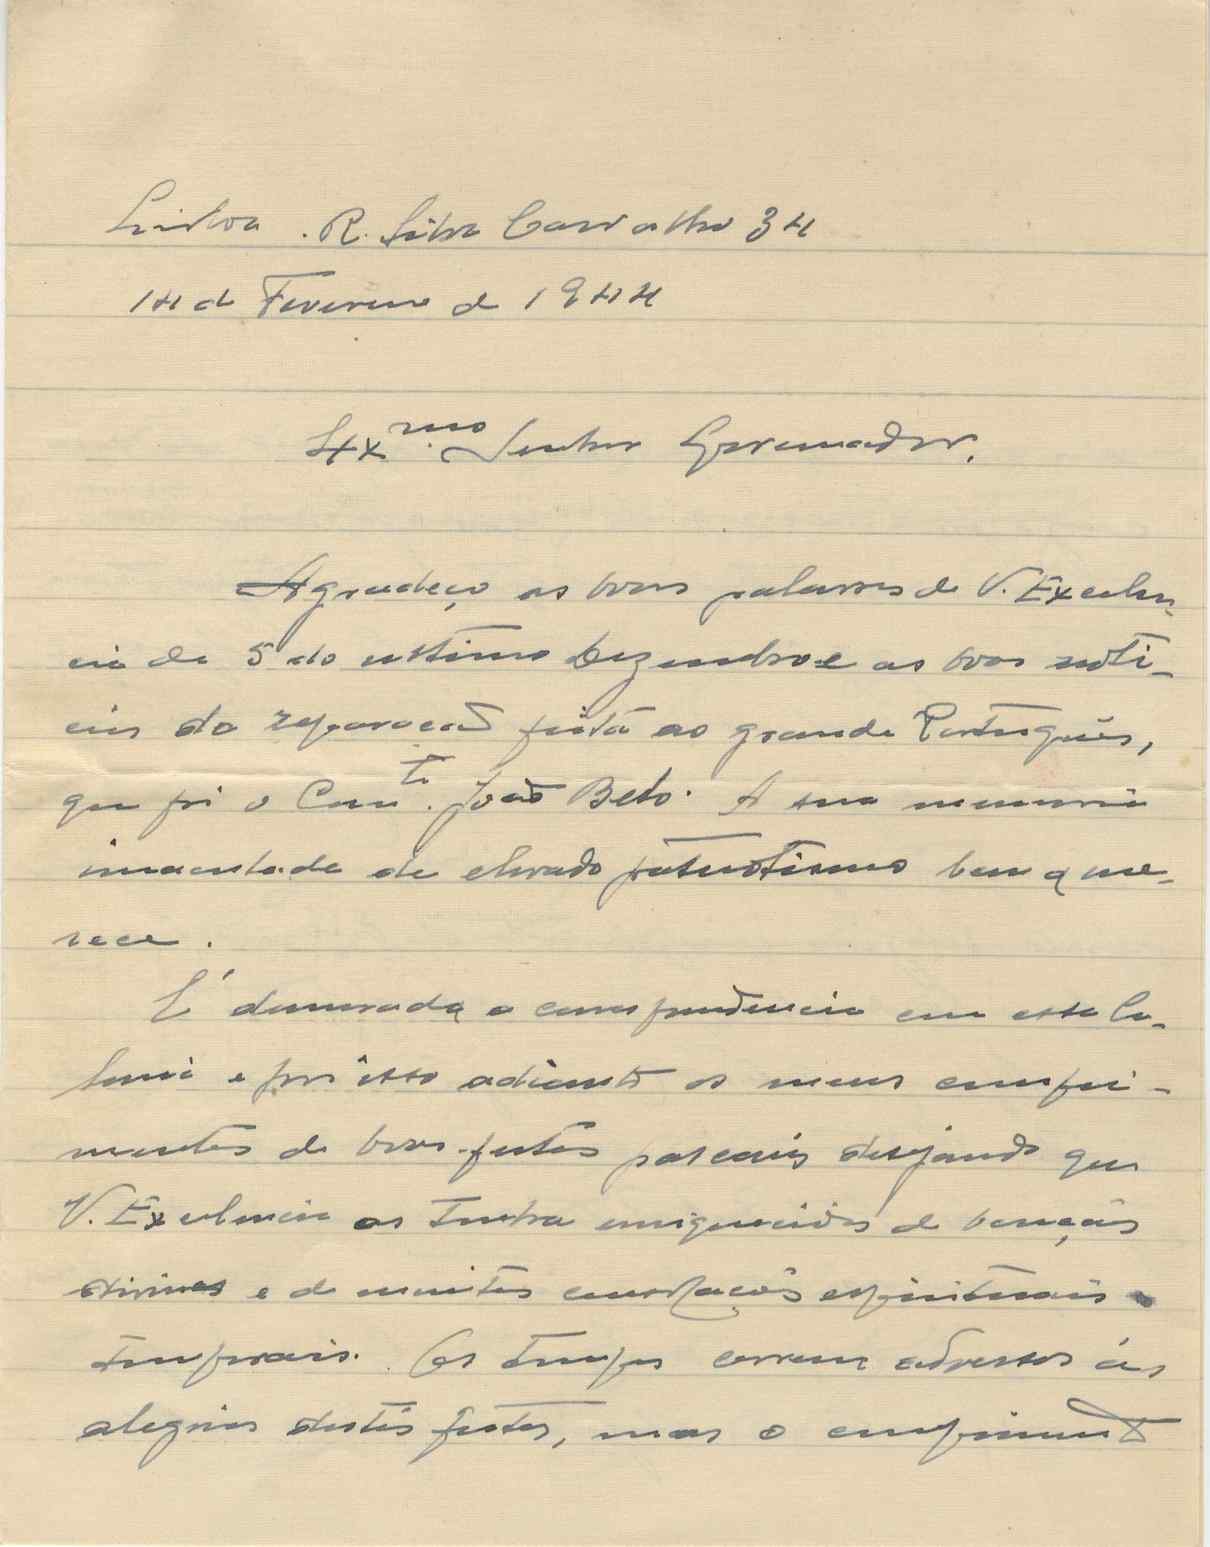 Lisboa . R. Silva Carvalho 34
14 de Fevereiro de 1944
Exmo. Senhor Governador.
Agradeço as boas palavras de V. Excelen-
cia de 5 do ultimo Dezembro e as boas noti-
cias da reparacão feita ao grande Português,
que foi o Comte. João Belo. A sua memoria
imaculada de elevado patriotismo bem a me-
rece.
É demorada a correspondencia em essa Co-
lonia e por isso adianto os meus cumpri-
mentos de boas-festas pascais desejando que
V. Excelencia as tenha enriquecidas de bençãos
divinas e de muitas consolações espirituais e
temporais. Os tempos correm adversos ás
alegrias destas festas, mas o cumprimento